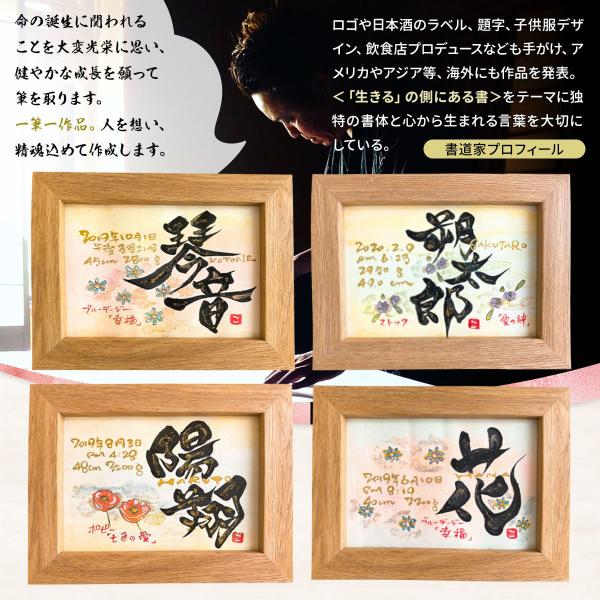 命の誕生に関われる
ことを大変光栄に思い、
健やかな成長を願って
筆を取ります。
一筆一作品。人を想い、
精魂込めて作成します。
ロゴや日本酒のラベル、題字、子供服デザ
イン、飲食店プロデュースなども手がけ、ア
メリカやアジア等、海外にも作品を発表。
＜「生きる」の側にある書＞をテーマに独
特の書体と心から生まれる言葉を大切に
している。
書道家プロフィール
2019年10月1日
45cm 2800g
琴音
KOTONE
ブルーデージー
「幸福」
2020.2.9
pm 6:23
2950g
49.0cm
朔太郎
SAKUTARO
ストック
「愛の絆」
2019年8月3日
pm 4:28
48cm 3200g
陽翔
HARUTO
ポピー
「七色の愛」
2019年6月10日
pm 8:19
40cm 3200g
花
HANA
ブルーデージー
「幸福」